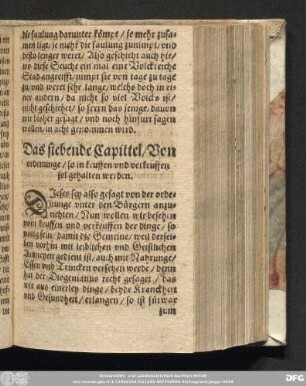 die faulung darunter kömpt / so mehr zusa-
men ligt, je mehr die faulung zunimpt / vnd
desto lenger weret / Also geschicht auch hie /
diese Seuche ein mal eine Volckreiche
Stad angreifft / nimpt sie von tage zu tage
zu / vnd weret sehr lange / welchs doch in ei-
ner andern / da nicht so viel Volcks ist /
nicht geschiehet / so seyen das jenige / dauon
bisher gesagt / vnd noch hinfurt sagen
willen / in acht genommen wird.
Das siebende Capittel / Von
ordenunge / so in keuffen vnd verkeuffen
sol gehalten werden.
Dieses sey also gesagt von der orde-
nunge vnter den Bürgern anzu-
richten / Nun wollen wir besehen
vom keuffen vnd verkeuffen der dinge / so
nötig sein / damit die Gemeine / weil derselb-
en vorhin mit leiblichen vnd Geistlichen
Artzneyen gedienet ist / auch mit Nahrunge /
Essen vnd Trincken versehen werde / denn
hat der Diogenianus recht gesaget / das
wir aus einerley dinge / beyde Kranckheit
vnd Gesundheit / erlangen / so ist fürwar
kein